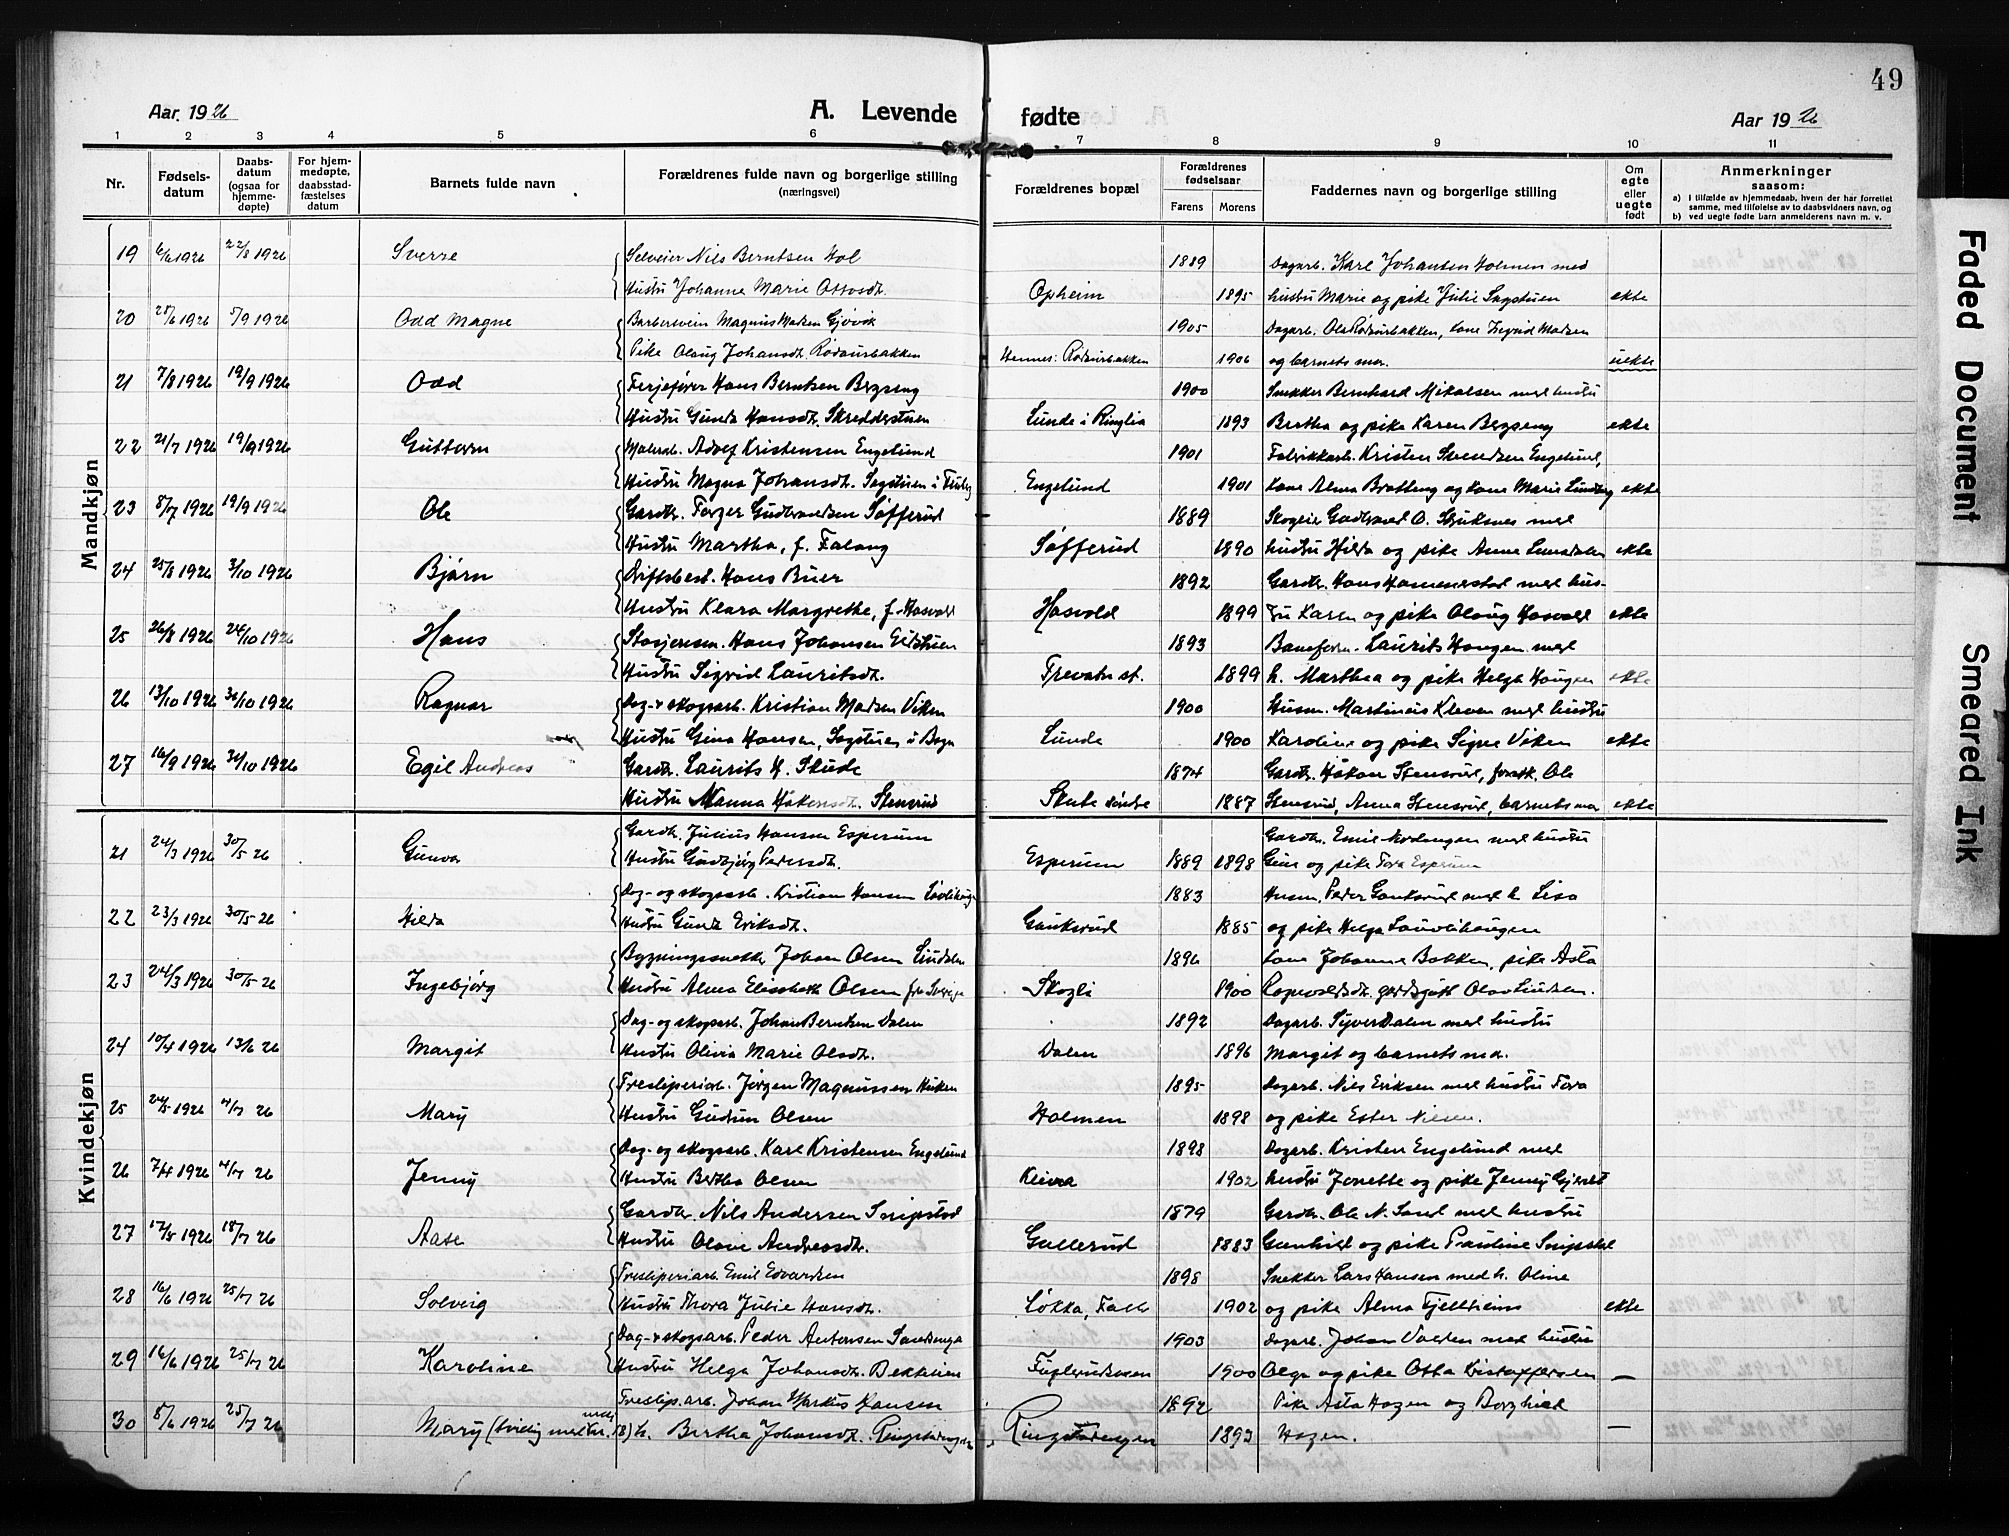 49
Aar 1926
A. Levende fødte
Aar 1926
1 2 3 4 5 6 7 8 9 10 11
Nr.
Fødsels-
datum
Daabs-
datum
(ogsaa for
hjemme-
døpte)
For hjem-
medøpte,
daabsstad-
fæstelses
datum
Barnets fulde navn
Forældrenes fulde navn og borgerlige stilling
(næringsvei)
Forældrenes bopæl
Forældrenes
fødselsaar
Farens Morens
Faddernes navn og borgerlige stilling
Om
egte
eller
uegte
født
Anmerkninger
saasom:
a) I tilfælde av hjemmedaab, hvem der har forrettet
samme, med tilføielse av to daabsvidners navn, og
b) ved uegte fødte barn anmelderens navn m. v.
Mandkjøn
19 6/6 1926 22/8 1926 Sverre Selveier Nils Berntsen Hol 1889 Dagarb. Karl Johansen Holmen med
Hustru Johanne Marie Ottosdt. Opheim 1895 hustru Marie og pike Julie Sagstuen ekte
20 28/6 1926 5/9 1926 Odd Magne Barbersvein Magnus Madsen Gjøvik 1905 Dagarb. Ola Rødsurbakken, kone Ingrid Madsen
Pike Olaug Johansdt. Rødsurbakken Hennes: Rødsurbakken 1906 og barnets mor. uekte
21 7/8 1926 12/9 1926 Odd Ferjefører Hans Berntsen Bergseng 1900 Snekker Bernhard Mikalsen med hustru
Hustru Gunda Hansdt. Skredderstuen Lunde i Ringlia 1893 Bertha og pike Karen Bergseng ekte
22 21/7 1926 19/9 1926 Guttorm Malersv. Adolf Kristensen Engelund 1901 Fabrikkarb. Kristen Svendsen Engelund,
Hustru Magna Johansdt. Sagstuen i Engelund 1901 kone Alma Bratteng og kone Marie Lundeby ekte
23 8/7 1926 19/9 1926 Ole Gardbr. Torger Gudbrandsen Søfferud 1889 Skogeier Gudbrand O. Struksnes med
Hustru Martha, f. Falang Søfferud 1890 hustru Hilda og pike Anne Lunddalen ekte
24 25/8 1926 3/10 1926 Bjørn Driftsbest. Hans Buer 1892 Gardbr. Hans Hammerstad med hus-
Hustru Klara Margrethe, f. Hasvold Hasvold 1899 tru Karen og pike Olaug Hasvold ekte
25 26/8 1926 24/10 1926 Hans Stasjonsm. Hans Johansen Eidstuen 1893 Baneform. Laurits Haugen med
Hustru Sigrid Lauritsdt. Trevatn st. 1899 h. Marthea og pike Helga Haugen ekte
26 13/10 1926 31/10 1926 Ragnar Dag- & skogsarb. Kristian Madsen Viken 1900 Husm. Martinius Kleven med hustru
Hustru Gina Hansen, Sagstuen i Begn Lunde 1900 Karoline og pike Signe Viken ekte
27 16/9 1926 31/10 1926 Egil Andreas Gardbr. Laurits H. Skude 1874 Gardbr. Håkon Stensrud, forstk. Ole
Hustru Manna Håkensdt. Stensrud Skute søndre 1887 Stensrud, Anna Stensrud, barnets mor ekte
Kvindekjøn
21 24/3 1926 30/5 26 Gunvor Gardbr. Julius Hansen Esperum Gardbr. Emil Nordengen med hustru
Hustru Gudbjørg Pedersdt. Esperum 1889 1898 Gina og pike Tora Esperum
22 23/3 1926 30/5 26 Hilda Dag- og skogsarb. Kristian Hansen Løvlihaugen 1883 Husm. Peder Gauksrud med h. Lisa
Hustru Gunda Eriksdt. Gauksrud 1885 og pike Helga Løvlihaugen
23 24/3 1926 30/5 26 Ingebjørg Bygningssnekk. Johan Olsen Lindalen 1896 kone Johanne Bakken, pike Asta
Hustru Alma Elisabeth Olsen fra Sverige Skogli 1900 Ragnvaldsdt. gardsgutt Olav Lindalen.
24 10/4 1926 13/6 26 Margit Dag- og skogsarb. Johan Berntsen Dalen 1892 Dagarb. Syver Dalen med hustru
Hustru Olivia Marie Olsdt. Dalen 1896 Margit og barnets mor.
25 24/5 1926 4/7 26 Mary Tresliperiarb. Jørgen Magnussen Huken 1895 Dagarb. Nils Eriksen med hustru Tora
Hustru Gudrun Olsen Holmen 1898 og pike Ester Nilsen.
26 7/4 1926 4/7 26 Jenny Dag- og skogsarb. Karl Kristensen Engelund 1898 Dagarb. Kristen Engelund med
Hustru Bertha Olsen Kleiva 1902 hustru Jonette og pike Jenny
27 12/5 1926 18/7 26 Aase Gardbr. Nils Andersen Snipstad 1879 Gardbr. Ole N. med hustru
Hustru Olave Andreasdt. Gullerud 1883 Gunhild og pike Pauline Snipstad
28 16/6 1926 25/7 26 Solveig Tresliperiarb. Emil Edvardsen 1898 Snekker Lars Hansen med h. Oline
Hustru Thora Julie Hansdt. Løkka, Fall 1902 og pike Alma Fjellheim ekte
29 16/6 1926 25/7 26 Karoline Dag- & skogsarb. Peder Antonsen Sandvenga 1903 Dagarb. Johan Volden med hustru
Hustru Helga Johansdt. Bekkelien Fuglerudsosen 1900 Olga og pike Otta Kristoffersen —
30 8/6 1926 25/7 26 Mary (tvilling med Nr. 18) Treslip.arb. Johan Markus Hansen 1892 Pike Asta Hagen og Borghild
h. Bertha Johansdt. Ringstadengen Ringstadengen 1893 Hagen. —
Faded Document
Smeared Ink